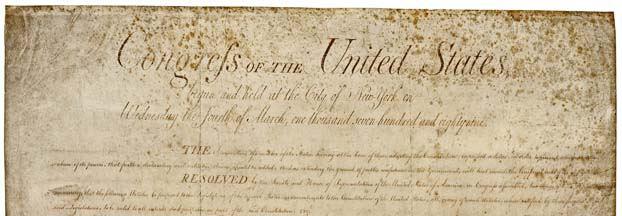 Congreſs OF THE United States,
begun and held at the City of New-York, on
Wednesday the fourth of March, one thousand seven hundred and eighty nine.
THE Conventions of a number of the States, having at the time of their adopting the Constitution, expressed a desire, in order to prevent
abuse of its powers, that further declaratory and restrictive clauses should be added: And as extending the ground of public confidence in the Government, will best ensure the beneficent ends
RESOLVED by the Senate and House of Representatives of the United States of America, in Congress assembled, two thirds
concurring, that the following Articles be proposed to the Legislatures of the several States, as amendments to the Constitution of the United States, all, or any of which Articles, when ratified by three fourths
said Legislatures, to be valid to all intents and purposes, as part of the said Constitution; viz.